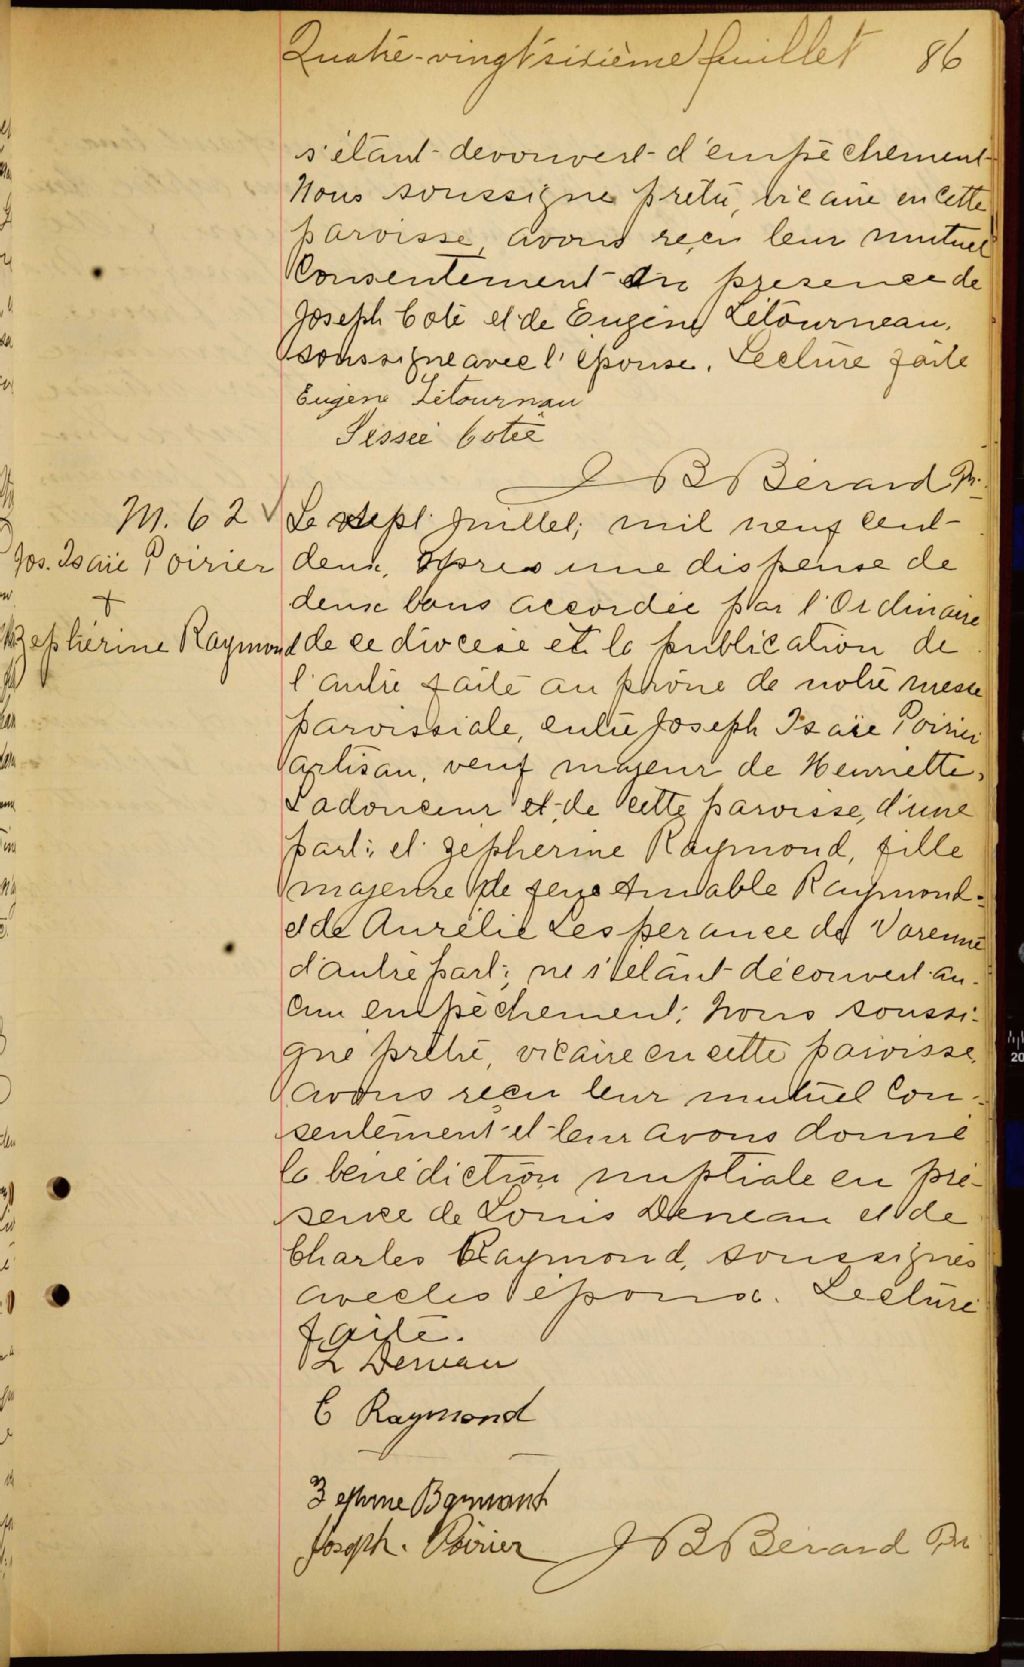 Quatre-vingt sixième feuillet 86
s'étant decouvert d'empêchement
Nous soussigné prêtre, vicaire en cette
paroisse, avons reçu leur mutuel
Consentement en presence de
Joseph Coté et de Eugène Létourneau,
soussigné avec l'épouse. Lecture faite
Eugène Létournau
Coteé
J B Bérard Ptr.
M. 62
Jos. Isaïe Poirier
+
Zephérine Raymond
Le sept Juillet, mil neuf cent-
deux, après une dispense de
deux bans accordée par l'Ordinaire
de ce diocèse et la publication de
l'autre faite au prône de notre messe
paroissiale, entre Joseph Isaïe Poirier
artisan, veuf majeur de Henriette
Ladouceur et de cette paroisse, d'une
part; et Zépherine Raymond, fille
majeure de feu Amable Raymond
et de Aurélie Lesperance de Varenne
d'autre part; ne s'étant découvert au-
cun empêchement; Nous soussi-
gné prêtre, vicaire en cette paroisse
avons reçu leur mutuel Con-
sentement et leur avons donné
la bénédiction nuptiale en pré-
sence de Louis Deneau et de
Charles Raymond, soussignés
avec les époux. Lecture
faite.
L Deneau
C Raymond
Joseph. Poirier J B Bérard Ptr